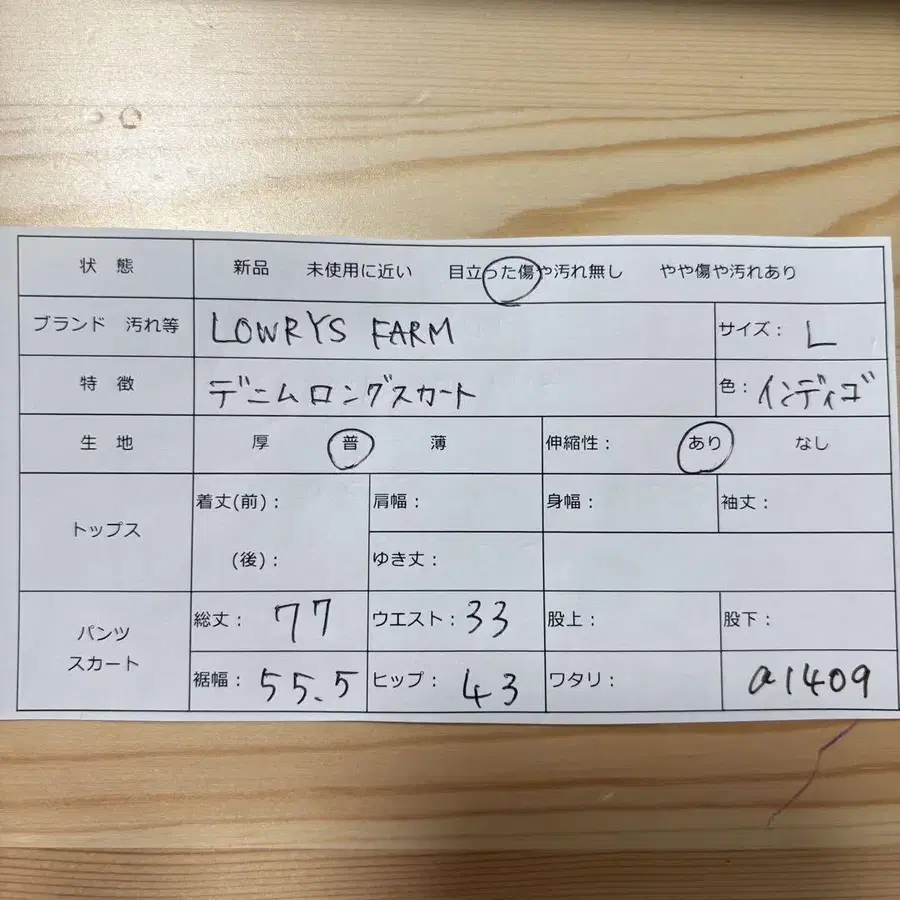 状 態 新品 未使用に近い 目立った傷や汚れ無し やや傷や汚れあり
ブランド 汚れ等 LOWRYS FARM サイズ： L
特 徴 デニムロングスカート 色： インディゴ
生 地 厚 普 薄 伸縮性： あり なし
トップス 着丈(前)： 肩幅： 身幅： 袖丈：
(後)： ゆき丈：
パンツ スカート 総丈： 77 ウエスト： 33 股上： 股下：
裾幅： 55.5 ヒップ： 43 ワタリ： a1409